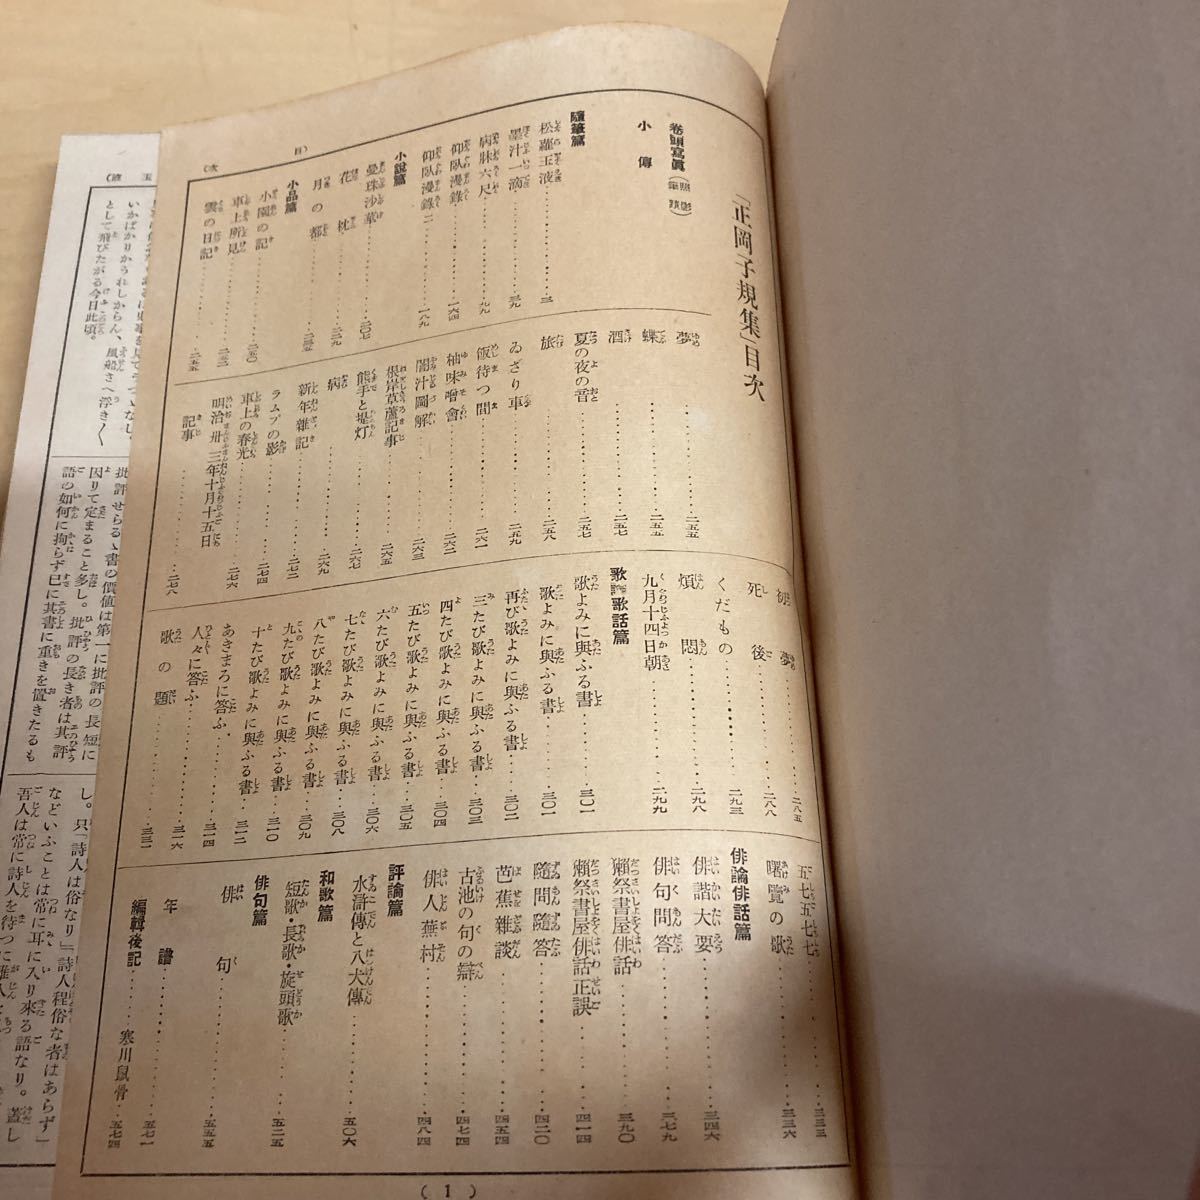 「正岡子規集」目次
卷頭寫眞
小傳
隨筆篇
松蘿玉液…………三
墨汁一滴…………三九
病牀六尺…………九九
仰臥漫錄…………一六四
仰臥漫錄二…………一八九
小說篇
曼珠沙華…………二〇七
花枕…………二二九
月の都…………二三五
小品篇
小園の記…………二五〇
車上所見…………二五二
雲の日記…………二五五
夢…………二五五
蝶…………二五五
酒…………二五七
夏の夜の音…………二五七
旅…………二五八
ゐざり車…………二五九
飯待つ間…………二六一
柚味噌會…………二六二
闇汁圖解…………二六三
根岸草蘆記事…………二六五
熊手と堤灯
病…………二六九
新年雜記…………二七二
ラムプの影…………二七四
車上の春光…………二七六
明治卅三年十月十五日
記事…………二七八
初夢…………二八五
死後…………二八八
くだもの…………二九三
煩悶…………二九八
九月十四日朝…………二九九
歌論歌話篇
歌よみに與ふる書…………三〇一
歌よみに與ふる書…………三〇一
再び歌よみに與ふる書…………三〇二
三たび歌よみに與ふる書…………三〇三
四たび歌よみに與ふる書…………三〇四
五たび歌よみに與ふる書…………三〇五
六たび歌よみに與ふる書…………三〇六
七たび歌よみに與ふる書…………三〇八
八たび歌よみに與ふる書…………三〇九
九たび歌よみに與ふる書…………三一〇
十たび歌よみに與ふる書…………三一二
あきまろに答ふ…………三一四
人々に答ふ…………三一六
歌の題…………三三一
五七五七七…………三三三
曙覽の歌…………三三六
俳論俳話篇
俳諧大要…………三四六
俳句問答…………三七九
獺祭書屋俳話…………三九〇
獺祭書屋俳話正誤…………四一四
隨問隨答…………四二〇
芭蕉雜談…………四五四
古池の句の辯…………四七四
俳人蕪村…………四八四
評論篇
水滸傳と八犬傳…………五〇六
和歌篇
短歌・長歌・旋頭歌…………五二五
俳句篇
俳句…………五五五
年譜…………五七一
編輯後記…………寒川鼠骨…五七四
目
次
( 1 )
いかばかりかうれしからん、風船さへ浮き〱
として飛びたがる今日此頃。
批評せらるゝ書の價値は第一に批評の長短に
因りて定まること多し。批評の長き者は其評
語の如何に拘らず已に其書に重きを置きたるも
し。只「詩人は俗なり」「詩人程俗な者はあらず」
などいふことは常に耳に入り來る語なり。蓋し
吾人は常に詩人を待つに